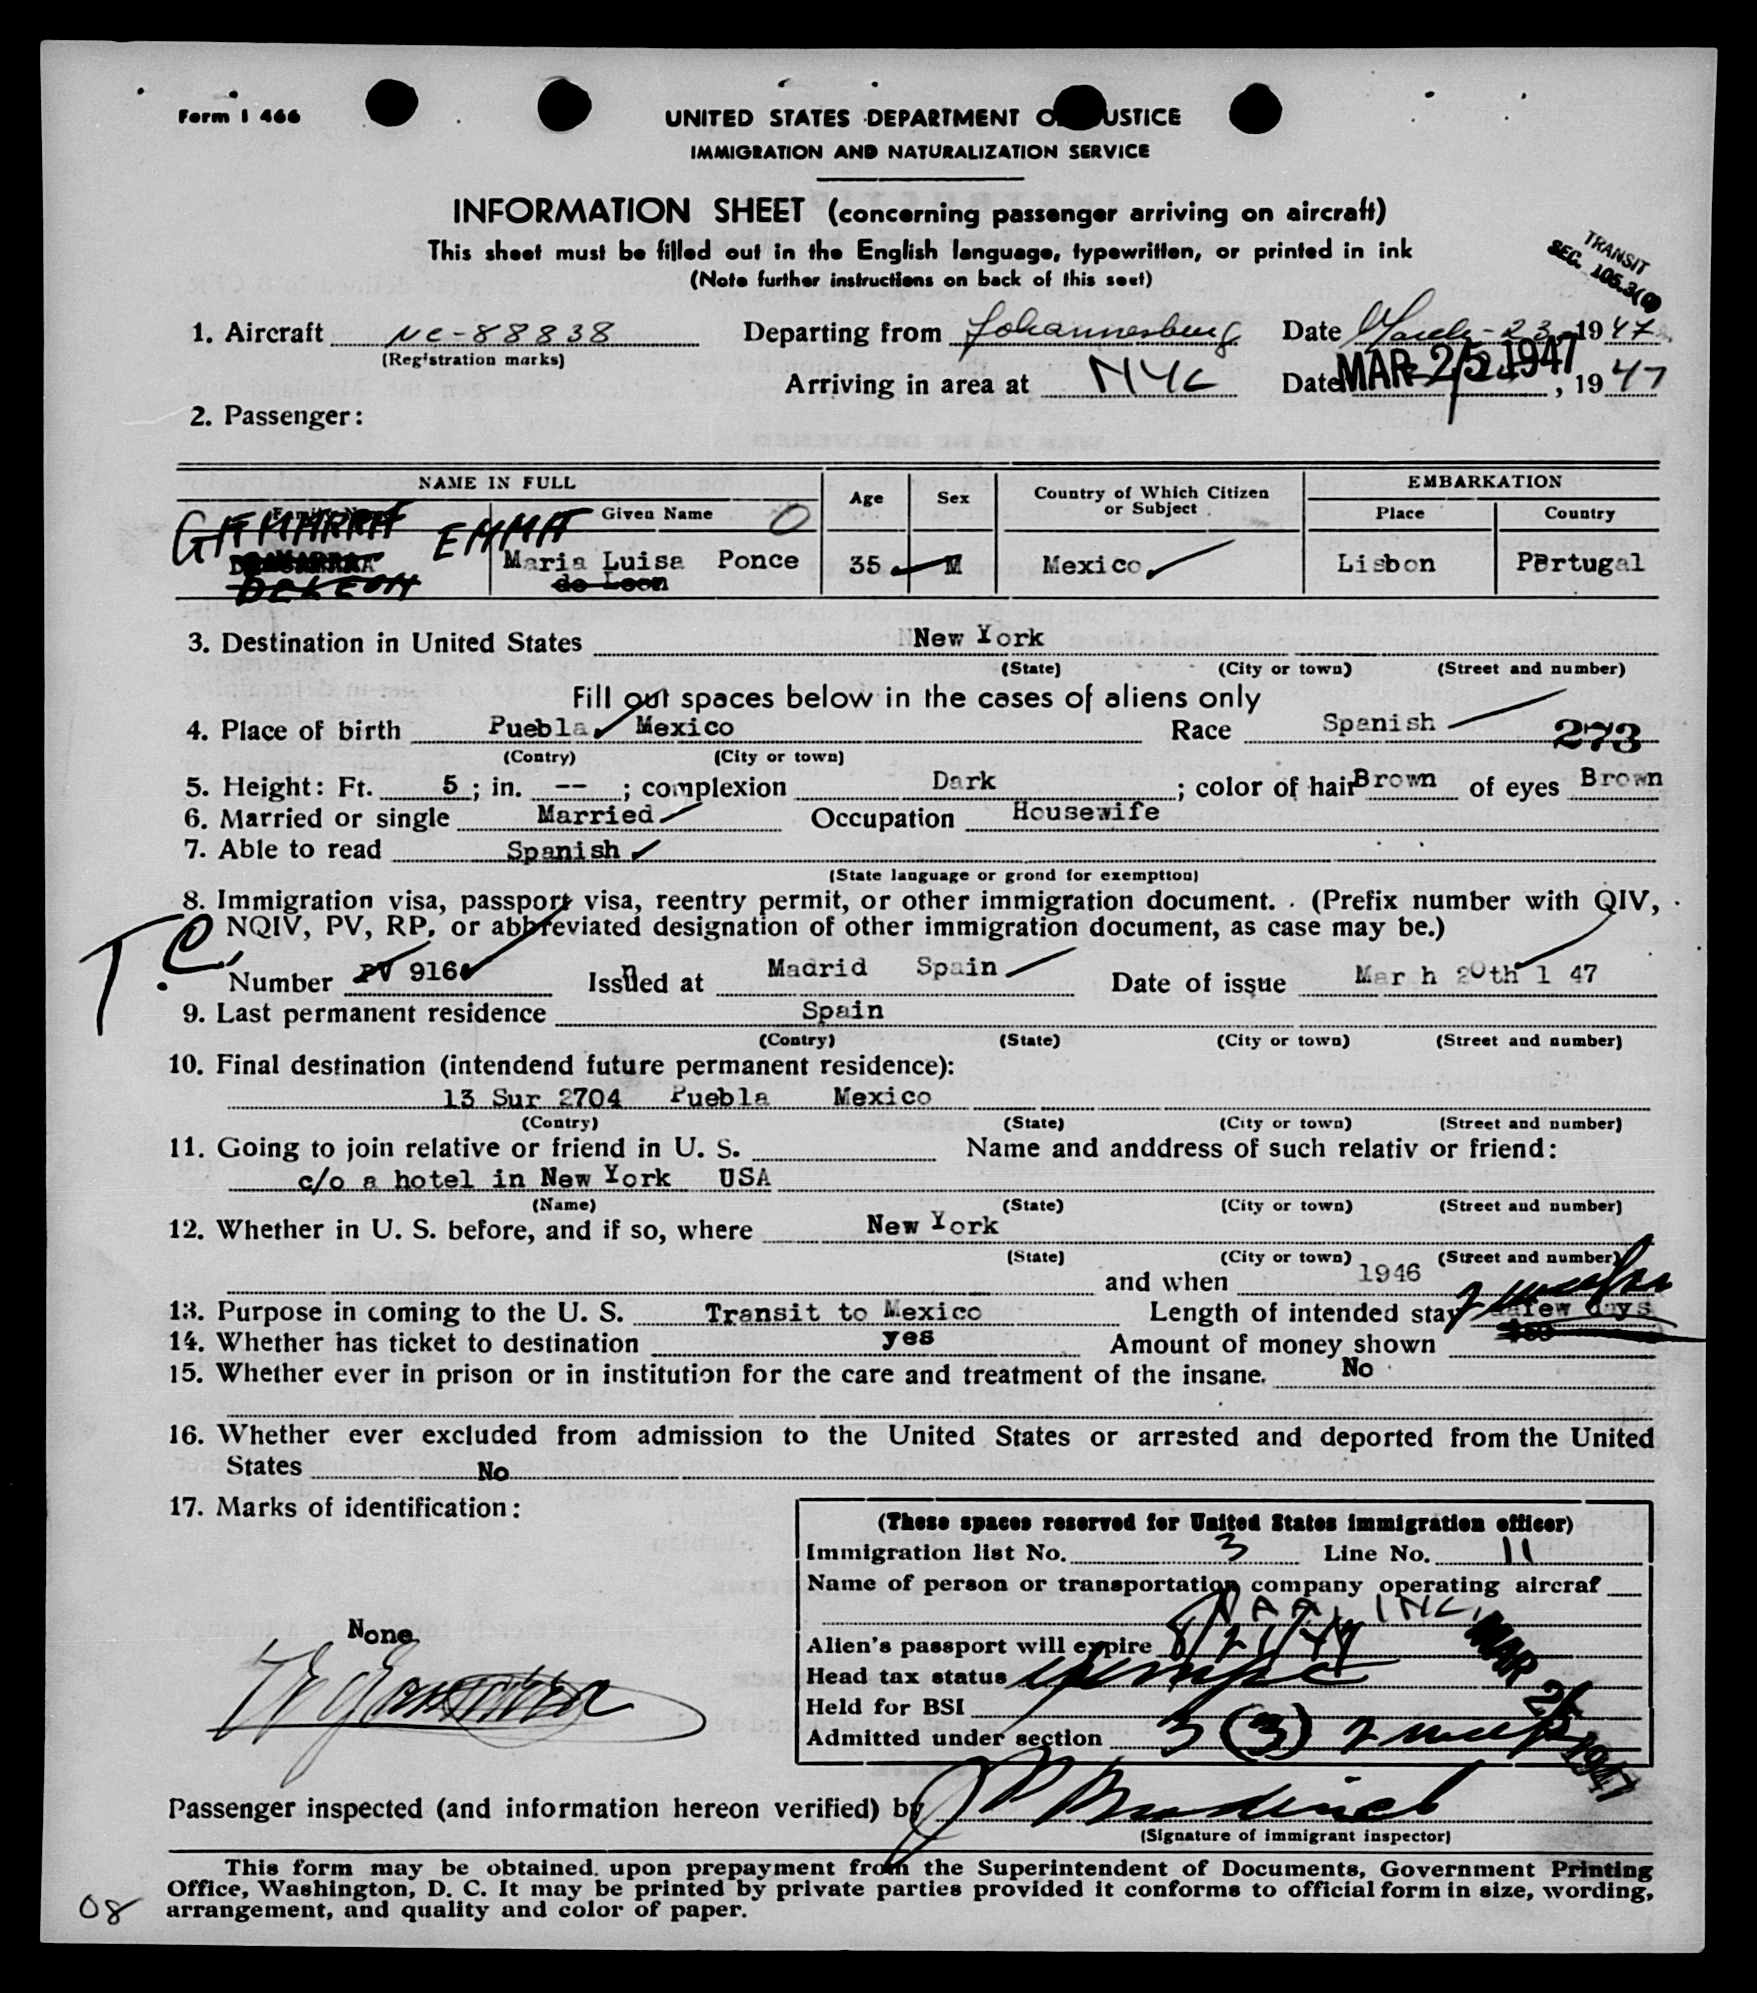 Form I 466
UNITED STATES DEPARTMENT O USTICE
IMMIGRATION AND NATURALIZATION SERVICE
INFORMATION SHEET (concerning passenger arriving on aircraft)
This sheet must be filled out in the English language, typewritten, or printed in ink
(Note further instructions on back of this seet)
TRANSIT
SEC. 105.3(
1. Aircraft NC-88838 Departing from Johannesburg Date March-23, 1947
(Registration marks)
Arriving in area at NYC Date MAR 25 1947, 1947
2. Passenger:
NAME IN FULL Age Sex Country of Which Citizen or Subject EMBARKATION
Family Name Given Name Place Country
GAMARRA EMMA
Maria Luisa Ponce 35 M Mexico Lisbon Portugal
DELEON de Leon
3. Destination in United States New York
(State) (City or town) (Street and number)
Fill out spaces below in the cases of aliens only
4. Place of birth Puebla Mexico Race Spanish 273
(Contry) (City or town)
5. Height: Ft. 5; in. --; complexion Dark; color of hair Brown of eyes Brown
6. Married or single Married Occupation Housewife
7. Able to read Spanish
(State language or grond for exemption)
8. Immigration visa, passport visa, reentry permit, or other immigration document. (Prefix number with QIV,
NQIV, PV, RP, or abbreviated designation of other immigration document, as case may be.)
T.C.
Number PV 916 Issued at Madrid Spain Date of issue Mar h 20th 1 47
9. Last permanent residence Spain
(Contry) (State) (City or town) (Street and number)
10. Final destination (intendend future permanent residence):
13 Sur 2704 Puebla Mexico
(Contry) (State) (City or town) (Street and number)
11. Going to join relative or friend in U. S. Name and anddress of such relativ or friend:
c/o a hotel in New York USA
(Name) (State) (City or town) (Street and number)
12. Whether in U. S. before, and if so, where New York
(State) (City or town) (Street and number)
and when 1946
13. Purpose in coming to the U. S. Transit to Mexico Length of intended stay a few days
14. Whether has ticket to destination yes Amount of money shown
15. Whether ever in prison or in institution for the care and treatment of the insane. No
16. Whether ever excluded from admission to the United States or arrested and deported from the United
States No
17. Marks of identification:
None
(These spaces reserved for United States immigration officer)
Immigration list No. 3 Line No. 11
Name of person or transportation company operating aircraf
PAA, INC.
Alien's passport will expire
Head tax status
Held for BSI
Admitted under section 3 (3)
MAR 25 1947
Passenger inspected (and information hereon verified) by
(Signature of immigrant inspector)
This form may be obtained upon prepayment from the Superintendent of Documents, Government Printing
Office, Washington, D. C. It may be printed by private parties provided it conforms to official form in size, wording,
arrangement, and quality and color of paper.
08